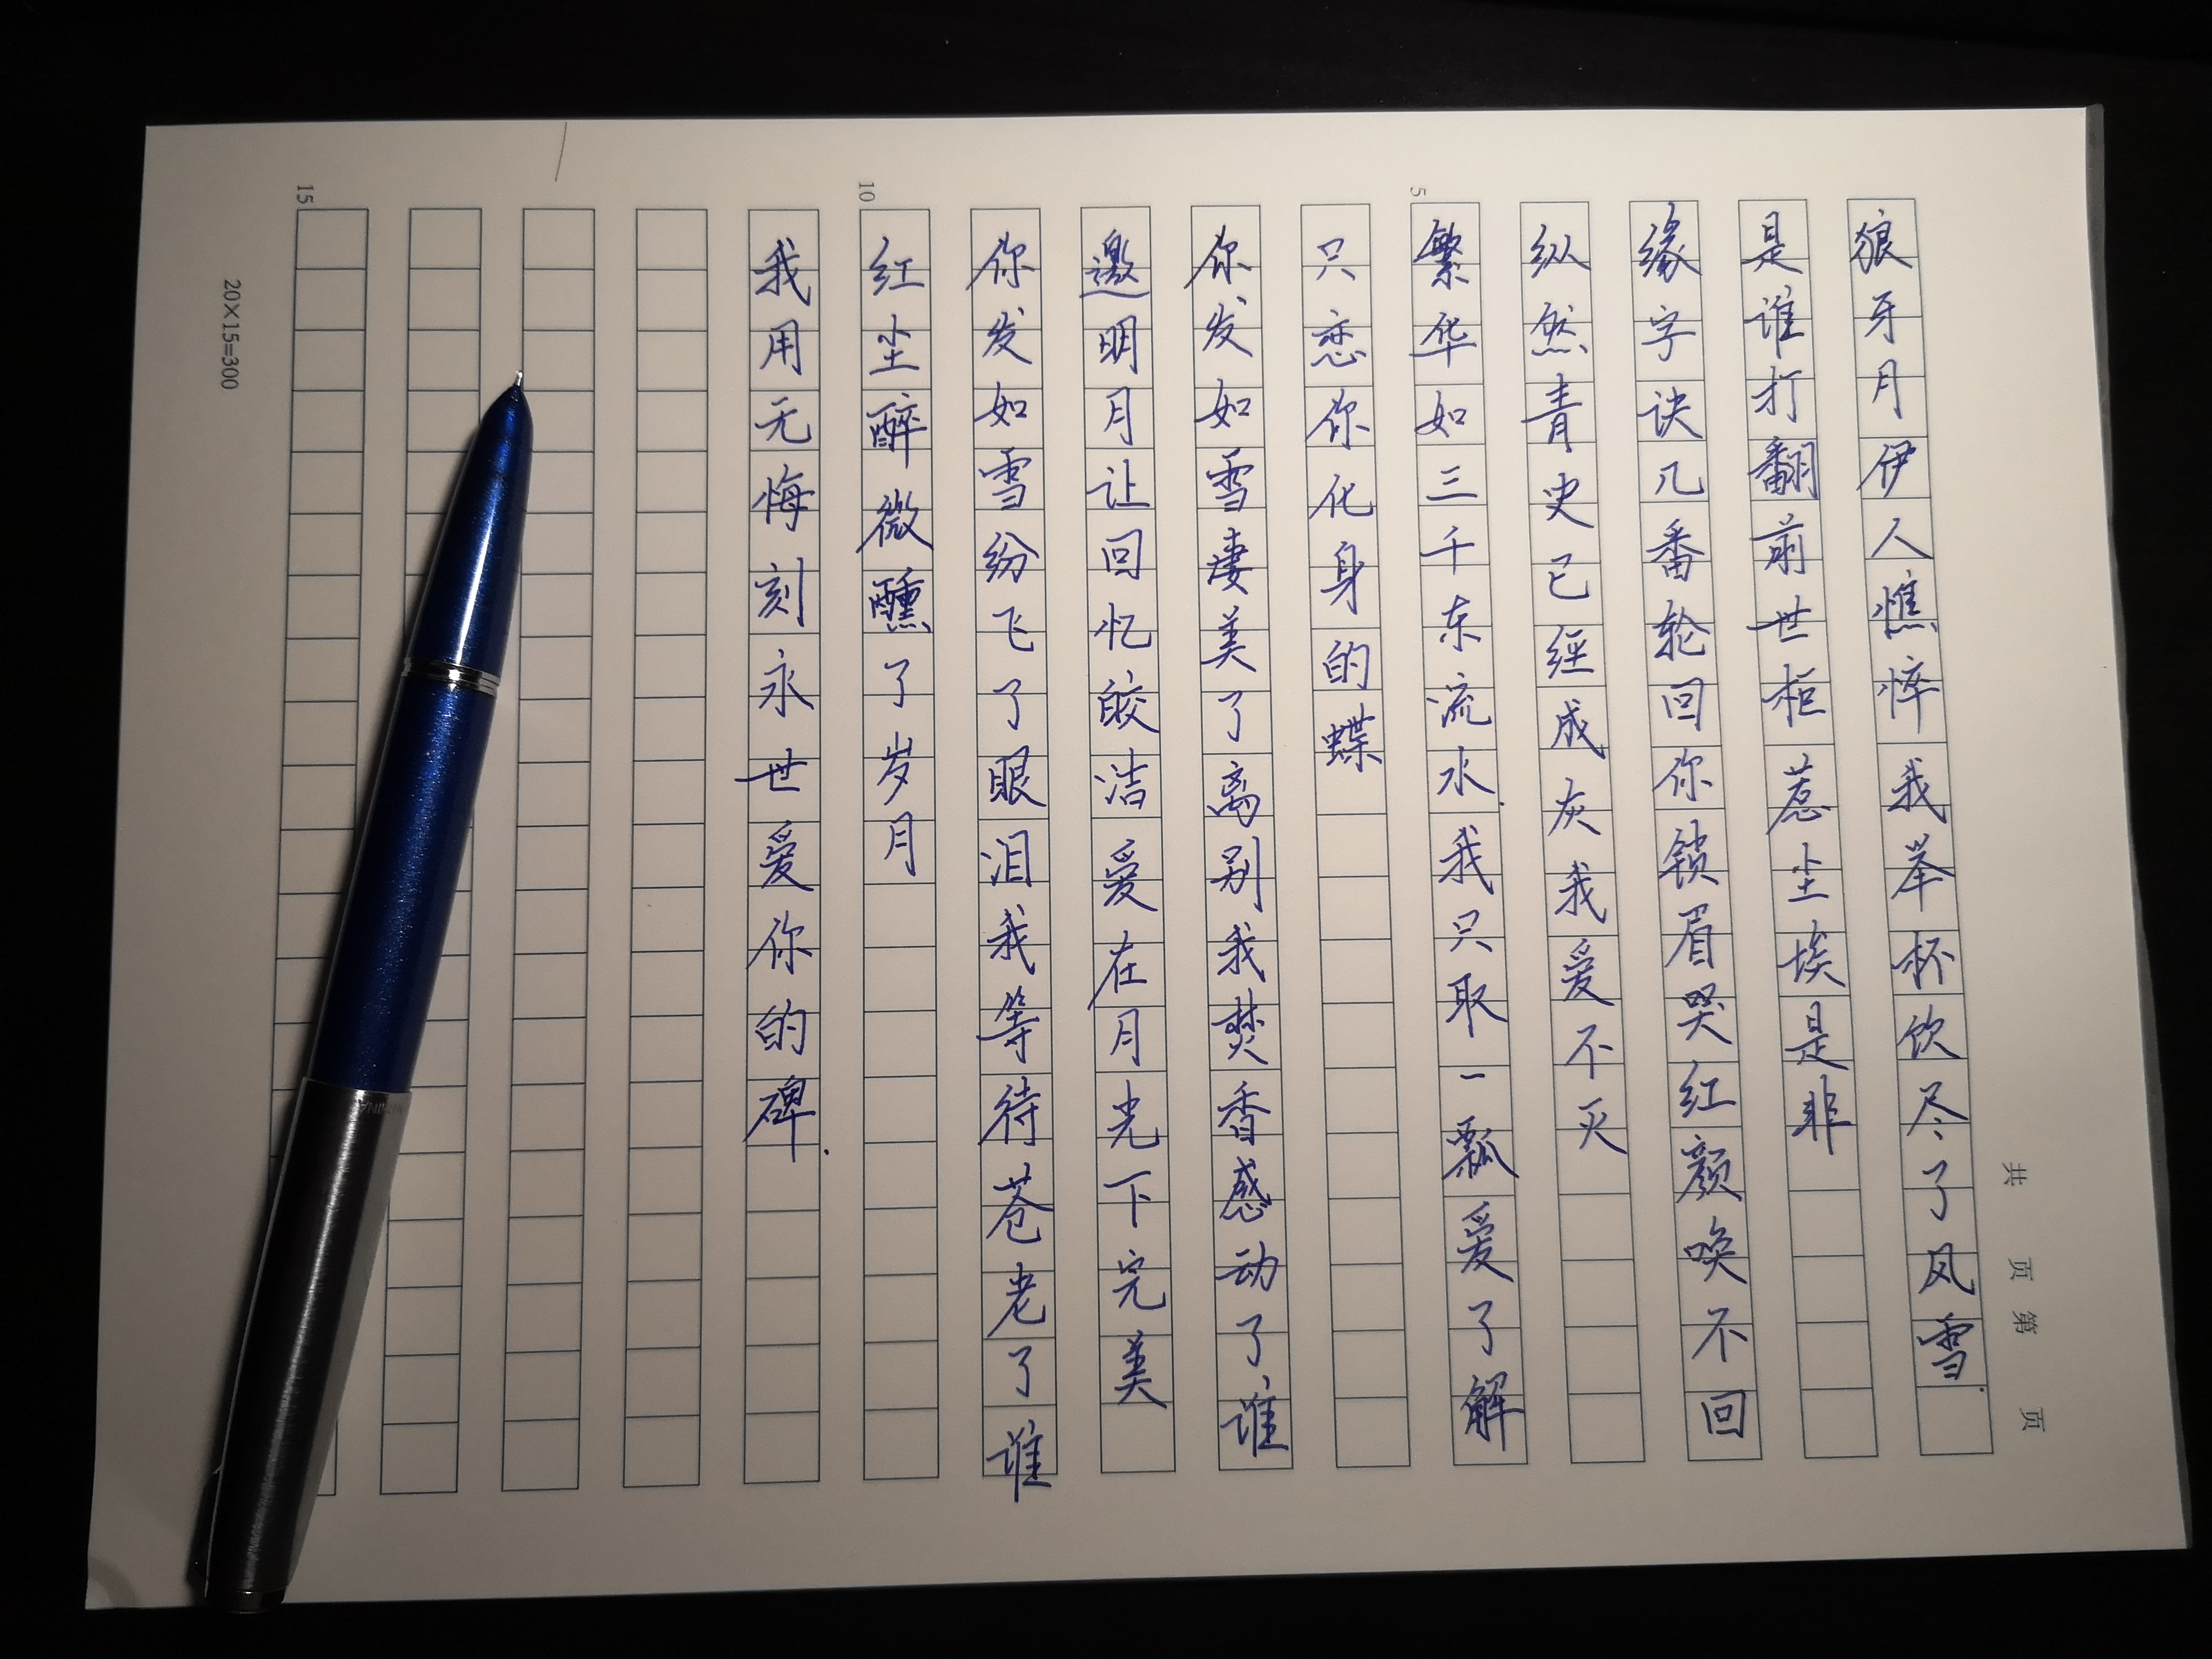 共 页 第 页
狼牙月伊人憔悴我举杯饮尽了风雪.
是谁打翻前世柜惹尘埃是非
缘字诀几番轮回你锁眉哭红颜唤不回
纵然青史已经成灰我爱不灭
繁华如三千东流水.我只取一瓢爱了解
只恋你化身的蝶
你发如雪凄美了离别我焚香感动了谁
邀明月让回忆皎洁爱在月光下完美
你发如雪纷飞了眼泪我等待苍老了谁
红尘醉微醺了岁月
我用无悔刻永世爱你的碑.
5
10
15
20×15=300